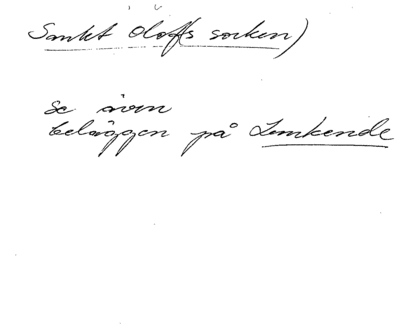 Sankt Oloffs socken)
se även
beläggen på Lemkende